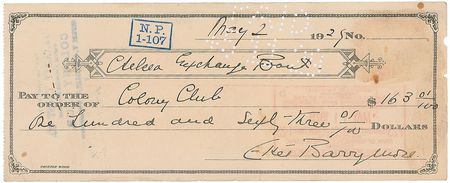 N.P.
1-107
May 2 1929 No.
Chelsea Exchange Bank
PAY TO THE
ORDER OF Colony Club $163 01/100
One Hundred and Sixty-Three 01/00 DOLLARS
Ethel Barrymore